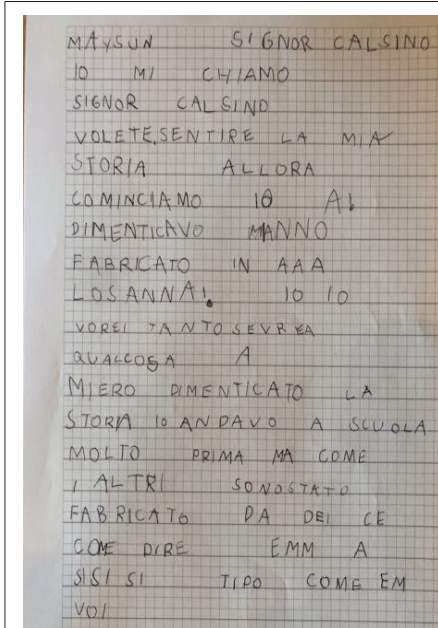 MAYSUN SIGNOR CALSINO
IO MI CHIAMO
SIGNOR CALSINO
VOLETE.SENTIRE LA MIA
STORIA ALLORA
COMINCIAMO IO A!
DIMENTICAVO MANNO
FABRICATO IN AAA
LOSANNA! IO IO
VOREI TANTO SEVREA
QUALCOSA A
MIERO DIMENTICATO LA
STORIA IO ANDAVO A SCUOLA
MOLTO PRIMA MA COME
I ALTRI SONOSTATO
FABRICATO DA DEI CE
COME DIRE EMM A
SISI SI TIPO COME EM
VOI